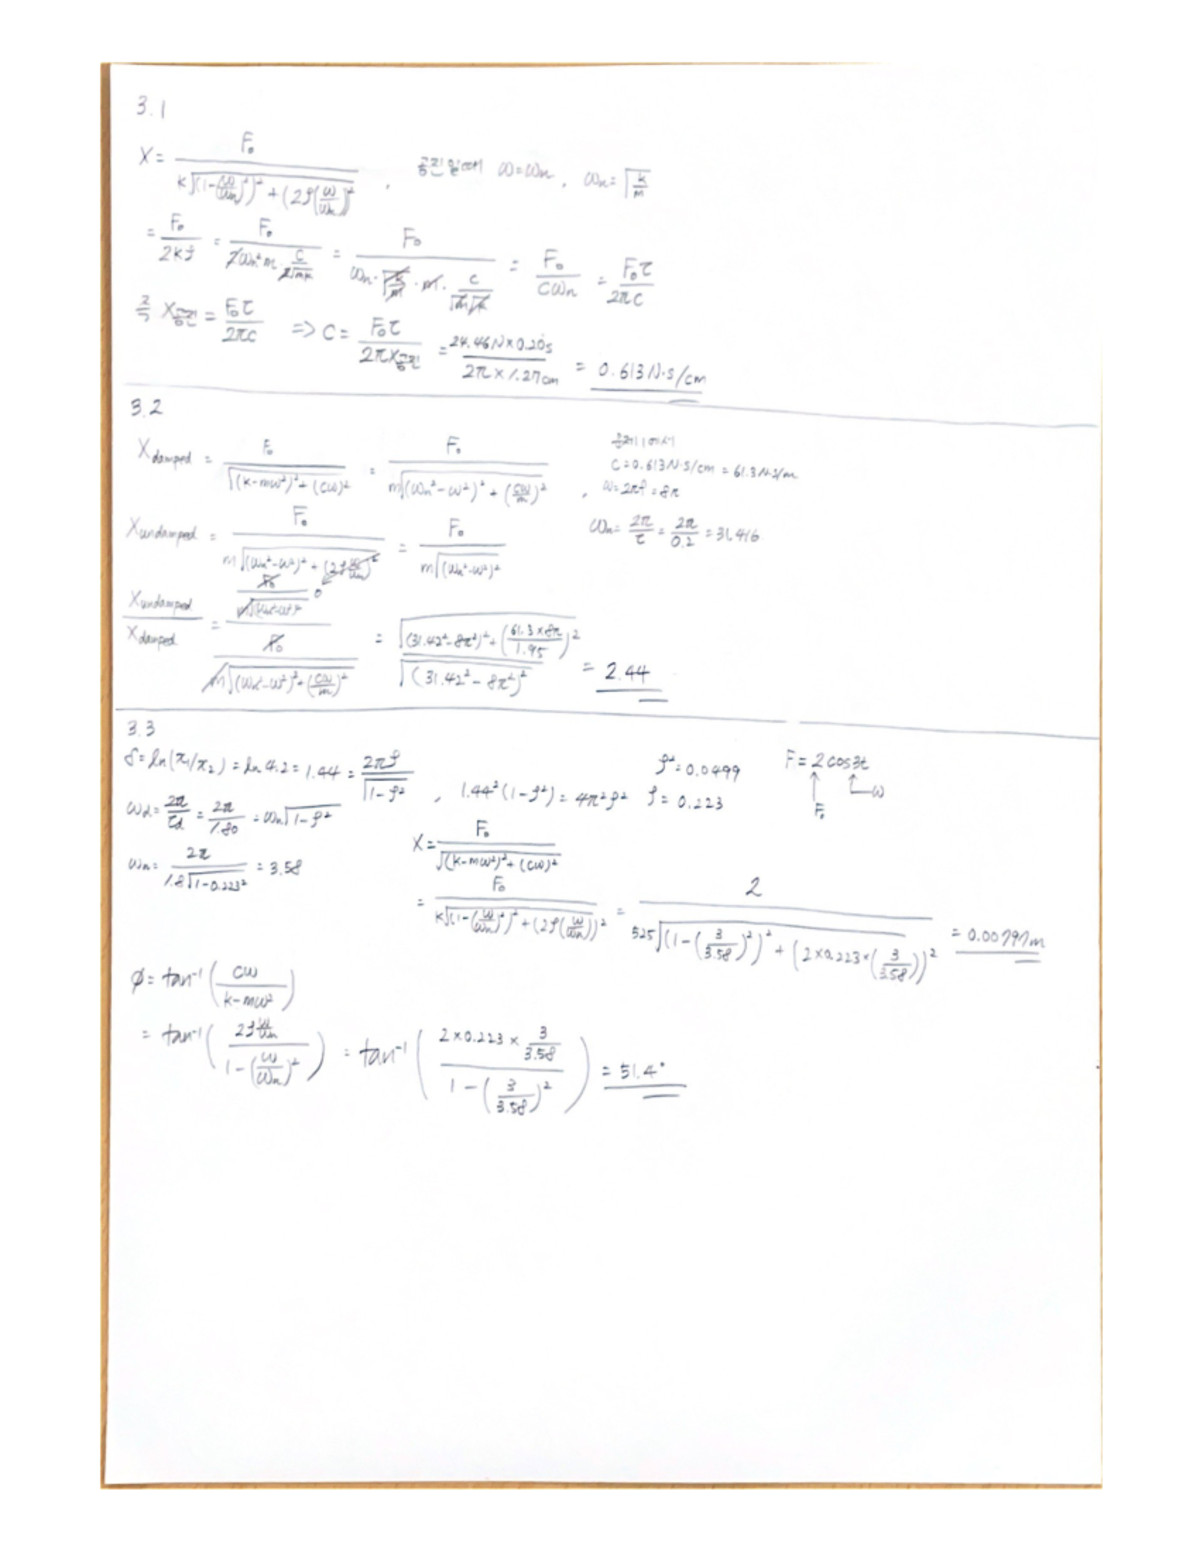 3.1
X = F₀ / (k√((1-(ω/ωn)²)² + (2ζ(ω/ωn))²) , 공진일때 ω=ωn , ωn=√(k/m)
= F₀/2kζ = F₀ / (2ωn²m · c/(2√mk)) = F₀ / (ωn·√(k/m)·m·c/(√m√k)) = F₀/cωn = F₀τ/2πc
즉 X공진 = F₀τ/2πc ⇒ C = F₀τ/2πX공진 = 24.46N×0.20s / 2π×1.27cm = 0.613N·s/cm
3.2
문제1에서
Xdamped = F₀/√((k-mω²)²+(cω)²) = F₀/m√((ωn²-ω²)²+(cω/m)²) , C=0.613N·s/cm = 61.3N·s/m
ω=2πf=8π
Xundamped = F₀/m√((ωn²-ω²)²+(2ζω/ωn)²) = F₀/m√(ωn²-ω²)² ωn = 2π/τ = 2π/0.2 = 31.416
0
Xundamped/Xdamped = (F₀/m√(ωn²-ω²)²) / (F₀/m√((ωn²-ω²)²+(cω/m)²)) = √((31.42²-8π²)²+(61.3×8π/1.95)²) / √(31.42²-8π²)² = 2.44
3.3
δ=ln(x₁/x₂)=ln4.2=1.44= 2πζ/√(1-ζ²) , 1.44²(1-ζ²)=4π²ζ² ζ²=0.0499 ζ=0.223 F=2cos3t
F₀ ω
ωd= 2π/τd = 2π/1.80 = ωn√(1-ζ²)
ωn= 2π/(1.8√(1-0.223²)) = 3.58
X= F₀/√((k-mω²)²+(cω)²)
= F₀/(k√((1-(ω/ωn)²)²+(2ζ(ω/ωn))²) = 2/(525√((1-(3/3.58)²)²+(2×0.223×(3/3.58))²) = 0.00797m
φ= tan⁻¹(cω/(k-mω²))
= tan⁻¹((2ζω/ωn)/(1-(ω/ωn)²)) = tan⁻¹((2×0.223×3/3.58)/(1-(3/3.58)²)) = 51.4°